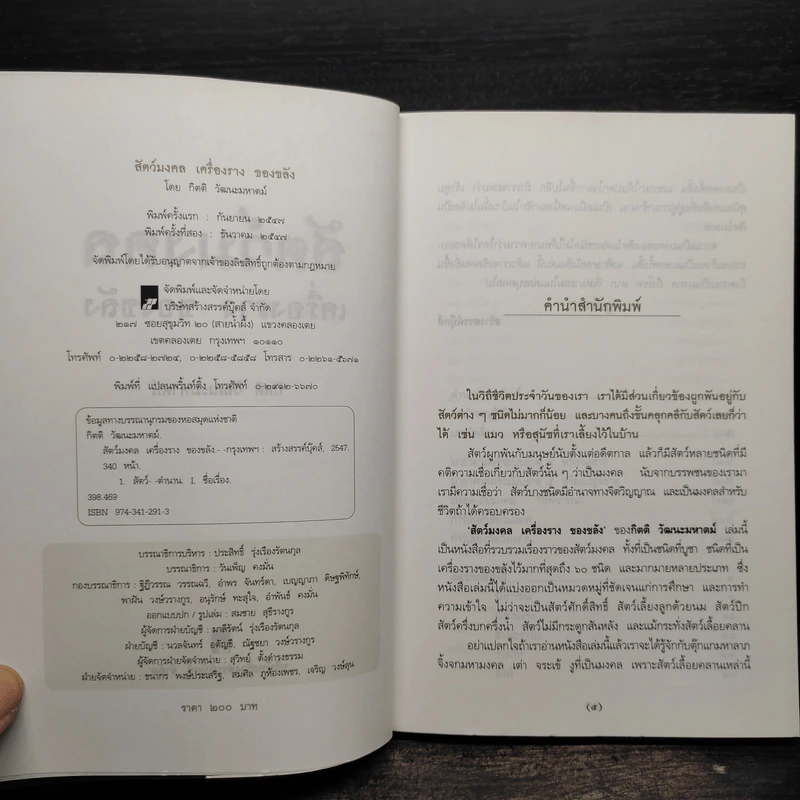 สัตว์มงคล เครื่องราง ของขลัง
โดย กิตติ วัฒนะมหาตม์
พิมพ์ครั้งแรก : กันยายน ๒๕๔๗
พิมพ์ครั้งที่สอง : ธันวาคม ๒๕๔๗
จัดพิมพ์โดยได้รับอนุญาตจากเจ้าของลิขสิทธิ์ถูกต้องตามกฎหมาย
จัดพิมพ์และจัดจำหน่ายโดย
บริษัทสร้างสรรค์บุ๊คส์ จำกัด
๒๑๗ ซอยสุขุมวิท ๒๐ (สายน้ำผึ้ง) แขวงคลองเตย
เขตคลองเตย กรุงเทพฯ ๑๐๑๑๐
โทรศัพท์ ๐-๒๒๕๘-๒๗๒๔, ๐-๒๒๕๘-๕๘๕๘ โทรสาร ๐-๒๒๖๑-๕๖๗๑
พิมพ์ที่ แปลนพริ้นท์ติ้ง โทรศัพท์ ๐-๒๙๑๒-๖๖๗๐
ข้อมูลทางบรรณานุกรมของหอสมุดแห่งชาติ
กิตติ วัฒนะมหาตม์.
สัตว์มงคล เครื่องราง ของขลัง.- -กรุงเทพฯ : สร้างสรรค์บุ๊คส์, 2547.
340 หน้า.
1. สัตว์- -ตำนาน. I. ชื่อเรื่อง.
398.469
ISBN 974-341-291-3
บรรณาธิการบริหาร : ประสิทธิ์ รุ่งเรืองรัตนกุล
บรรณาธิการ : วันเพ็ญ คงมั่น
กองบรรณาธิการ : ฐิฏิวรรณ วรรณฉวี, อำพร จันทร์ดา, เบญญาภา ดิษฐพิทักษ์,
พาฝัน วงษ์วรางกูร, อนุรักษ์ ทะสุใจ, อำพันธ์ คงมั่น
ออกแบบปก / รูปเล่ม : สมชาย สุธีรางกูร
ผู้จัดการฝ่ายบัญชี : มาลีรัตน์ รุ่งเรืองรัตนกุล
ฝ่ายบัญชี : นวลจันทร์ อตัญชี, ณัฐชยา วงษ์วรางกูร
ผู้จัดการฝ่ายจัดจำหน่าย : สุวิทย์ ตั้งดำรงธรรม
ฝ่ายจัดจำหน่าย : ธนากร พงษ์ประเสริฐ, สมศีล ภูห้องเพชร, เจริญ วงษ์ลุน
ราคา ๒๐๐ บาท
คำนำสำนักพิมพ์
ในวิถีชีวิตประจำวันของเรา เราได้มีส่วนเกี่ยวข้องผูกพันอยู่กับ
สัตว์ต่าง ๆ ชนิดไม่มากก็น้อย และบางคนถึงขั้นคลุกคลีกับสัตว์เลยก็ว่า
ได้ เช่น แมว หรือสุนัขที่เราเลี้ยงไว้ในบ้าน
สัตว์ผูกพันกับมนุษย์นับตั้งแต่อดีตกาล แล้วก็มีสัตว์หลายชนิดที่มี
คติความเชื่อเกี่ยวกับสัตว์นั้น ๆ ว่าเป็นมงคล นับจากบรรพชนของเรามา
เรามีความเชื่อว่า สัตว์บางชนิดมีอำนาจทางจิตวิญญาณ และเป็นมงคลสำหรับ
ชีวิตถ้าได้ครอบครอง
'สัตว์มงคล เครื่องราง ของขลัง' ของกิตติ วัฒนะมหาตม์ เล่มนี้
เป็นหนังสือที่รวบรวมเรื่องราวของสัตว์มงคล ทั้งที่เป็นชนิดที่บูชา ชนิดที่เป็น
เครื่องรางของขลังไว้มากที่สุดถึง ๖๐ ชนิด และมากมายหลายประเภท ซึ่ง
หนังสือเล่มนี้ได้แบ่งออกเป็นหมวดหมู่ที่ชัดเจนแก่การศึกษา และการทำ
ความเข้าใจ ไม่ว่าจะเป็นสัตว์ศักดิ์สิทธิ์ สัตว์เลี้ยงลูกด้วยนม สัตว์ปีก
สัตว์ครึ่งบกครึ่งน้ำ สัตว์ไม่มีกระดูกสันหลัง และแม้กระทั่งสัตว์เลื้อยคลาน
อย่าแปลกใจถ้าเราอ่านหนังสือเล่มนี้แล้วเราจะได้รู้จักกับตุ๊กแกมหาลาภ
จิ้งจกมหามงคล เต่า จระเข้ งูที่เป็นมงคล เพราะสัตว์เลื้อยคลานเหล่านี้
(๕)